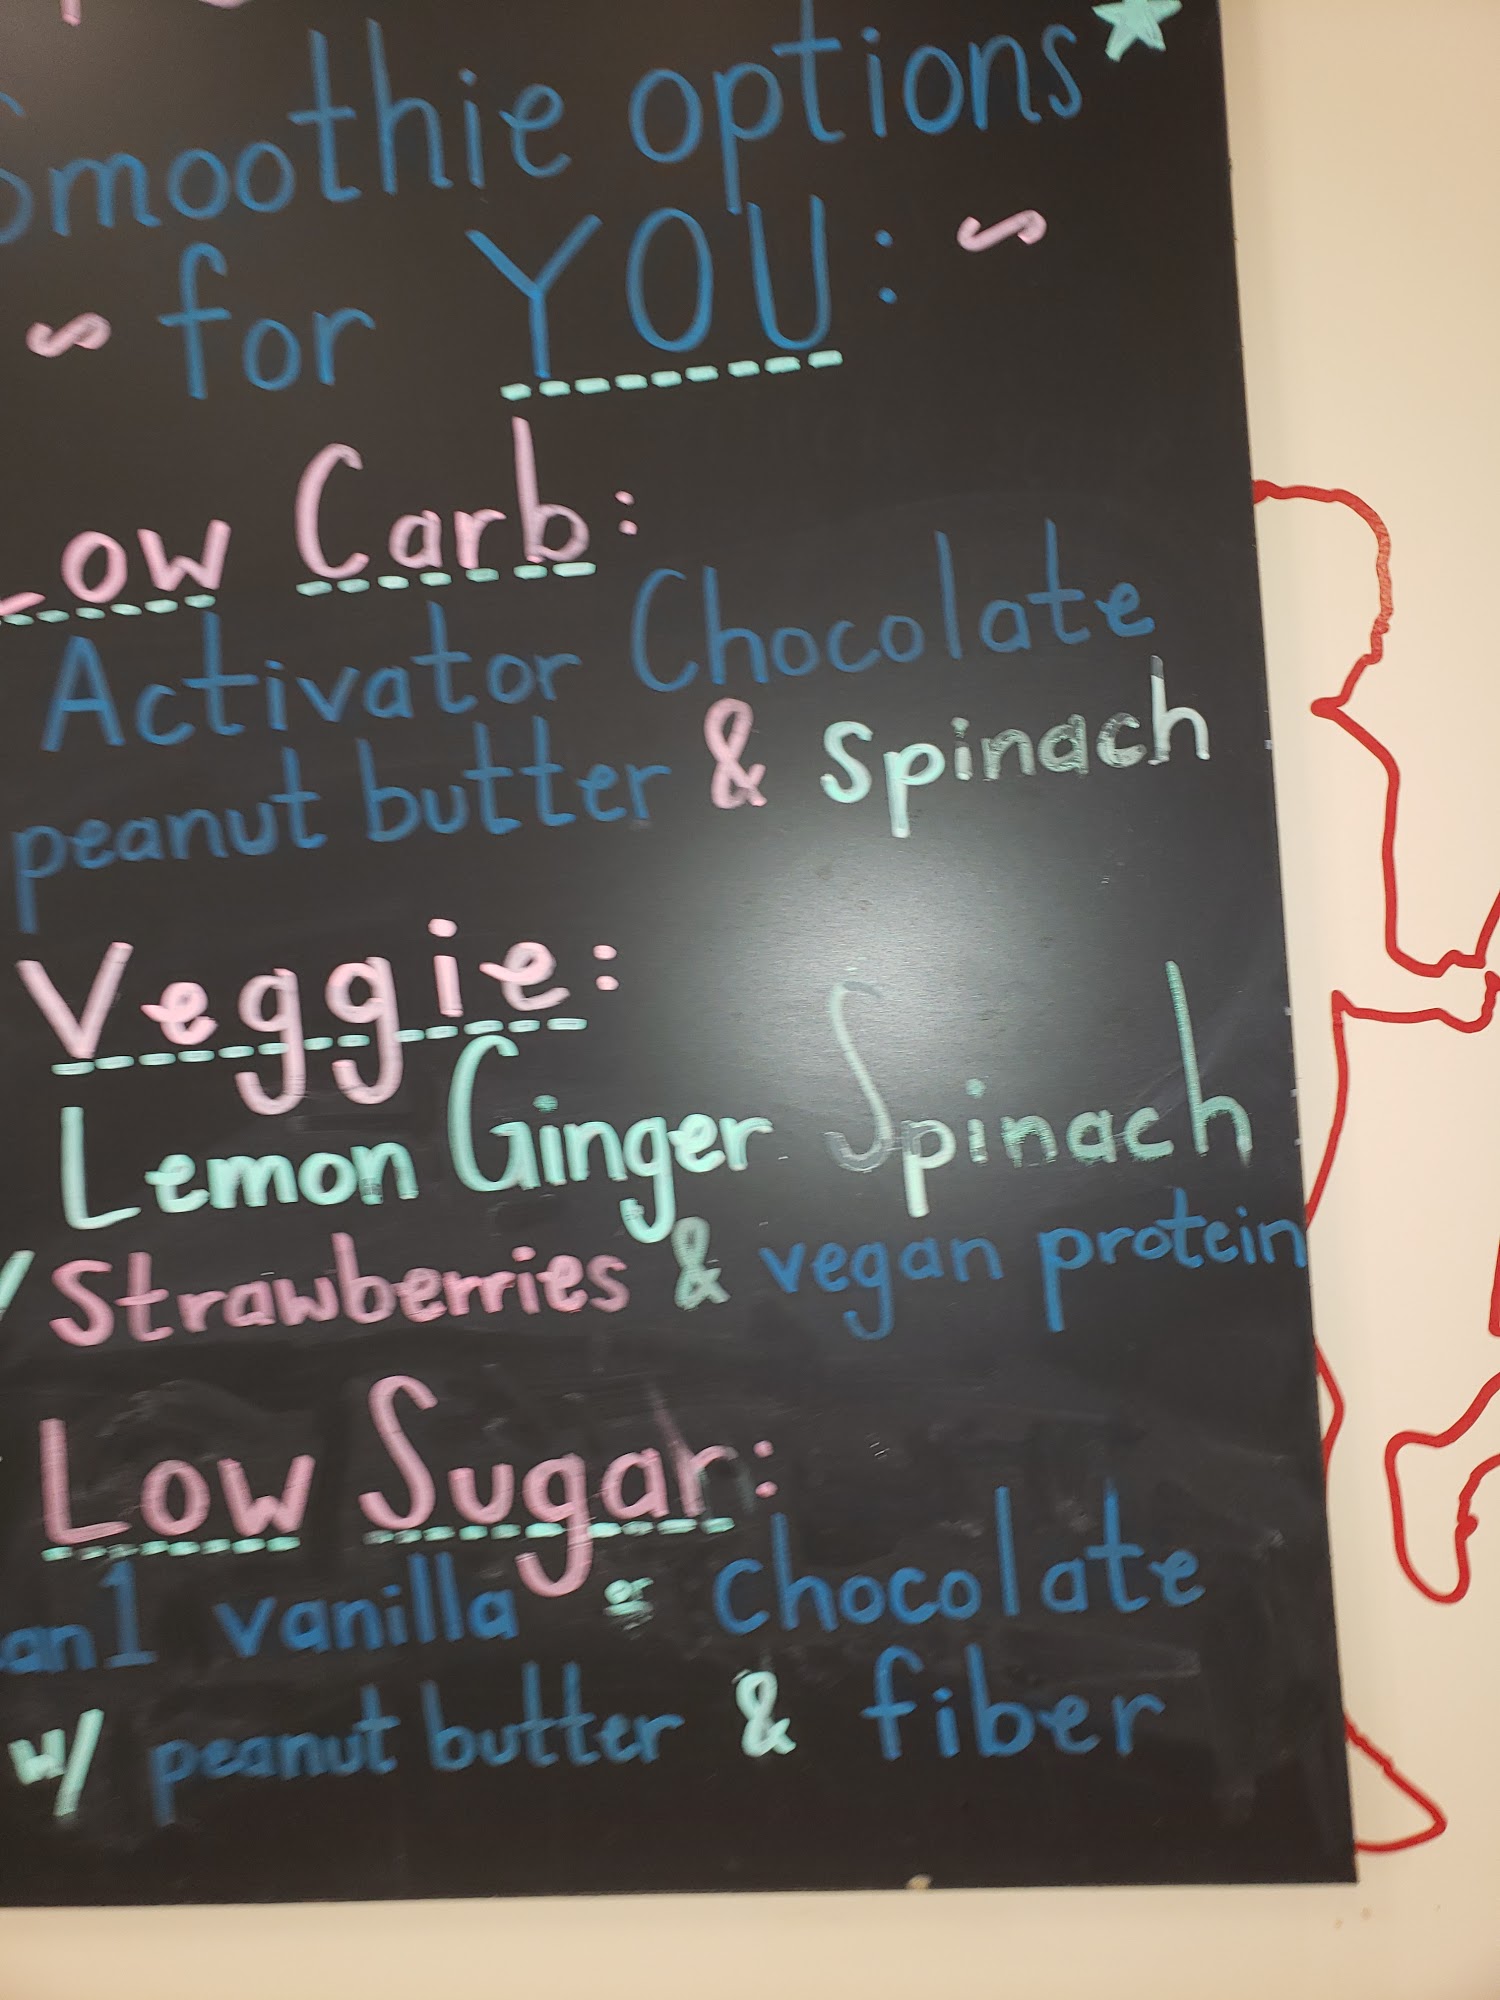 Smoothie options
~ for YOU: ~
Low Carb:
Activator Chocolate
peanut butter & Spinach
Veggie:
Lemon Ginger Spinach
w/ Strawberries & vegan protein
Low Sugar:
vanilla or Chocolate
w/ peanut butter & fiber